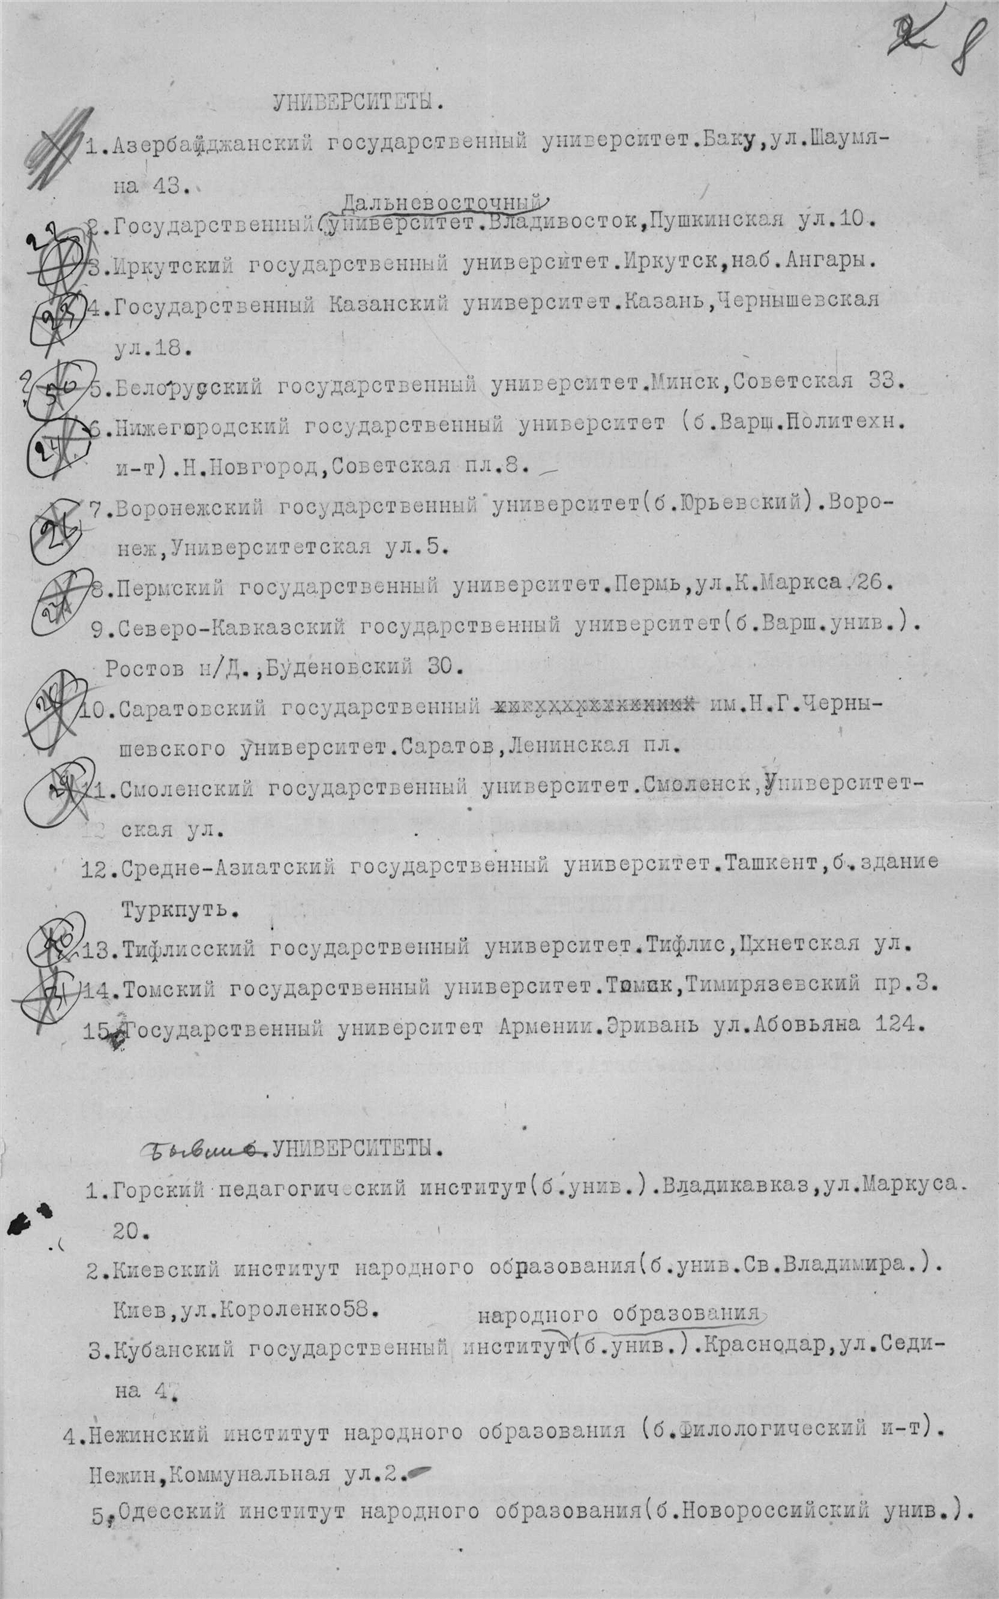 8
УНИВЕРСИТЕТЫ.
1.Азербайджанский государственный университет.Баку,ул.Шаумя-
на 43.
Дальневосточный
2.Государственный университет.Владивосток,Пушкинская ул.10.
22
3.Иркутский государственный университет.Иркутск,наб.Ангары.
23
4.Государственный Казанский университет.Казань,Чернышевская
ул.18.
? 50
5.Белорусский государственный университет.Минск,Советская 33.
24
6.Нижегородский государственный университет (б.Варш.Политехн.
и-т).Н.Новгород,Советская пл.8.
26
7.Воронежский государственный университет(б.Юрьевский).Воро-
неж,Университетская ул.5.
8.Пермский государственный университет.Пермь,ул.К.Маркса.26.
9.Северо-Кавказский государственный университет(б.Варш.унив.).
Ростов н/Д.,Буденовский 30.
10.Саратовский государственный им.Н.Г.Черны-
шевского университет.Саратов,Ленинская пл.
11.Смоленский государственный университет.Смоленск,Университет-
ская ул.
12.Средне-Азиатский государственный университет.Ташкент,б.здание
Туркпуть.
13.Тифлисский государственный университет.Тифлис,Цхнетская ул.
31
14.Томский государственный университет.Томск,Тимирязевский пр.3.
15.Государственный университет Армении.Эривань ул.Абовьяна 124.
Бывшие.УНИВЕРСИТЕТЫ.
1.Горский педагогический институт(б.унив.).Владикавказ,ул.Маркуса.
20.
2.Киевский институт народного образования(б.унив.Св.Владимира.).
Киев,ул.Короленко58.
народного образования
3.Кубанский государственный институт(б.унив.).Краснодар,ул.Седи-
на 4.
4.Нежинский институт народного образования (б.Филологический и-т).
Нежин,Коммунальная ул.2.
5.Одесский институт народного образования(б.Новороссийский унив.).